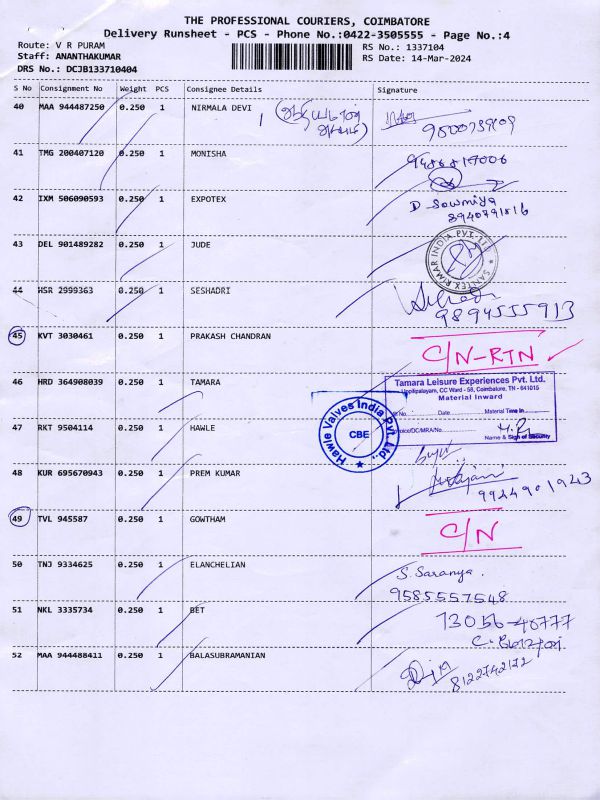 THE PROFESSIONAL COURIERS, COIMBATORE
Delivery Runsheet - PCS - Phone No.:0422-3505555 - Page No.:4
Route: V R PURAM
RS No.: 1337104
Staff: ANANTHAKUMAR
RS Date: 14-Mar-2024
DRS No.: DCJB133710404
S No Consignment No Weight PCS Consignee Details Signature
40 MAA 944487250 0.250 1 NIRMALA DEVI
41 TMG 200407120 0.250 1 MONISHA
42 IXM 506090593 0.250 1 EXPOTEX D Sowmiya
8940791816
43 DEL 901489282 0.250 1 JUDE
SANTEX RIMAR INDIA PVT. LTD
44 HSR 2999363 0.250 1 SESHADRI
9894555913
45 KVT 3030461 0.250 1 PRAKASH CHANDRAN C/N-RTN
46 HRD 364908039 0.250 1 TAMARA
Tamara Leisure Experiences Pvt. Ltd.
Uppilipalayam, CC Ward - 58, Coimbatore, TN - 641015
Material Inward
Date Material Time In
Invoice/DC/MRA/No.
Name & Sign of Security
47 RKT 9504114 0.250 1 HAWLE
Hawle Valves India Pvt. Ltd.,
CBE
48 KUR 695670943 0.250 1 PREM KUMAR
49 TVL 945587 0.250 1 GOWTHAM C/N
50 TNJ 9334625 0.250 1 ELANCHELIAN S. Saranya.
9585557548
51 NKL 3335734 0.250 1 BET 73056-40777
52 MAA 944488411 0.250 1 BALASUBRAMANIAN
8122742172